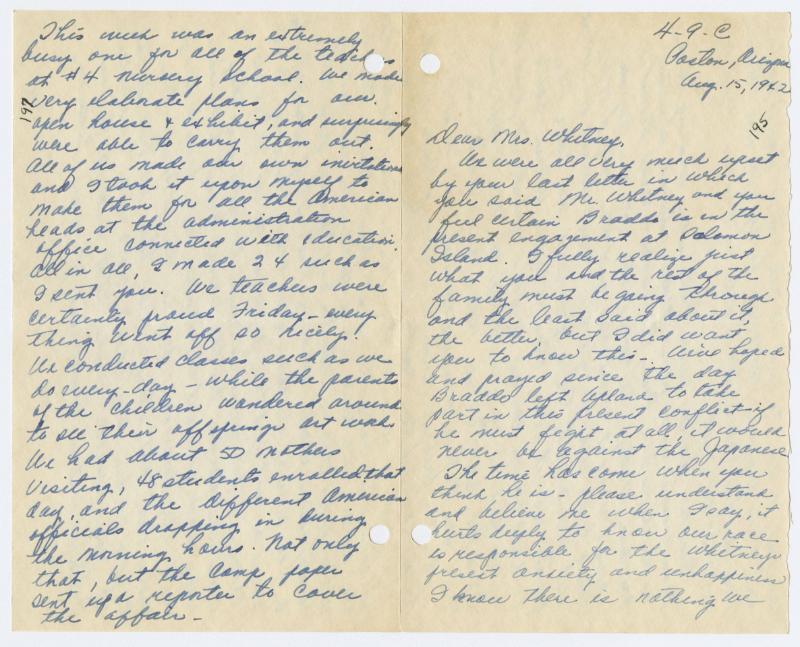 4-9-C
Poston, Arizona
Aug. 15, 1942
195
Dear Mrs. Whitney,
We were all very much upset
by your last letter in which
you said Mr. Whitney and you
feel certain Braddo is in the
present engagement at Solomon
Island. I fully realize just
what you and the rest of the
family must be going through
and the least said about it,
the better, but I did want
you to know this - We've hoped
and prayed since the day
Braddo left to take
part in this present conflict - if
he must fight at all, it would
never be against the Japanese.
The time has come when you
think he is - please understand
and believe me when I say, it
hurts deeply to know our race
is responsible for the Whitneys
present anxiety and unhappiness
I know there is nothing we
197
This week was an extremely
busy one for all of the teachers
at #4 nursery school. We made
very elaborate plans for our
open house & exhibit, and surprisingly
were able to carry them out.
All of us made our own invitations
and I took it upon myself to
make them for all the American
heads at the administration
office connected with education.
All in all, I made 24 such as
I sent you. We teachers were
certainly proud Friday - every
thing went off so nicely.
We conducted classes such as we
do every-day - while the parents
of the children wandered around
to see their offsprings art work.
We had about 50 mothers
visiting, 48 students enrolled that
day, and the different American
officials dropping in during
the morning hours. Not only
that, but the camp paper
sent up a reporter to cover
the affair -